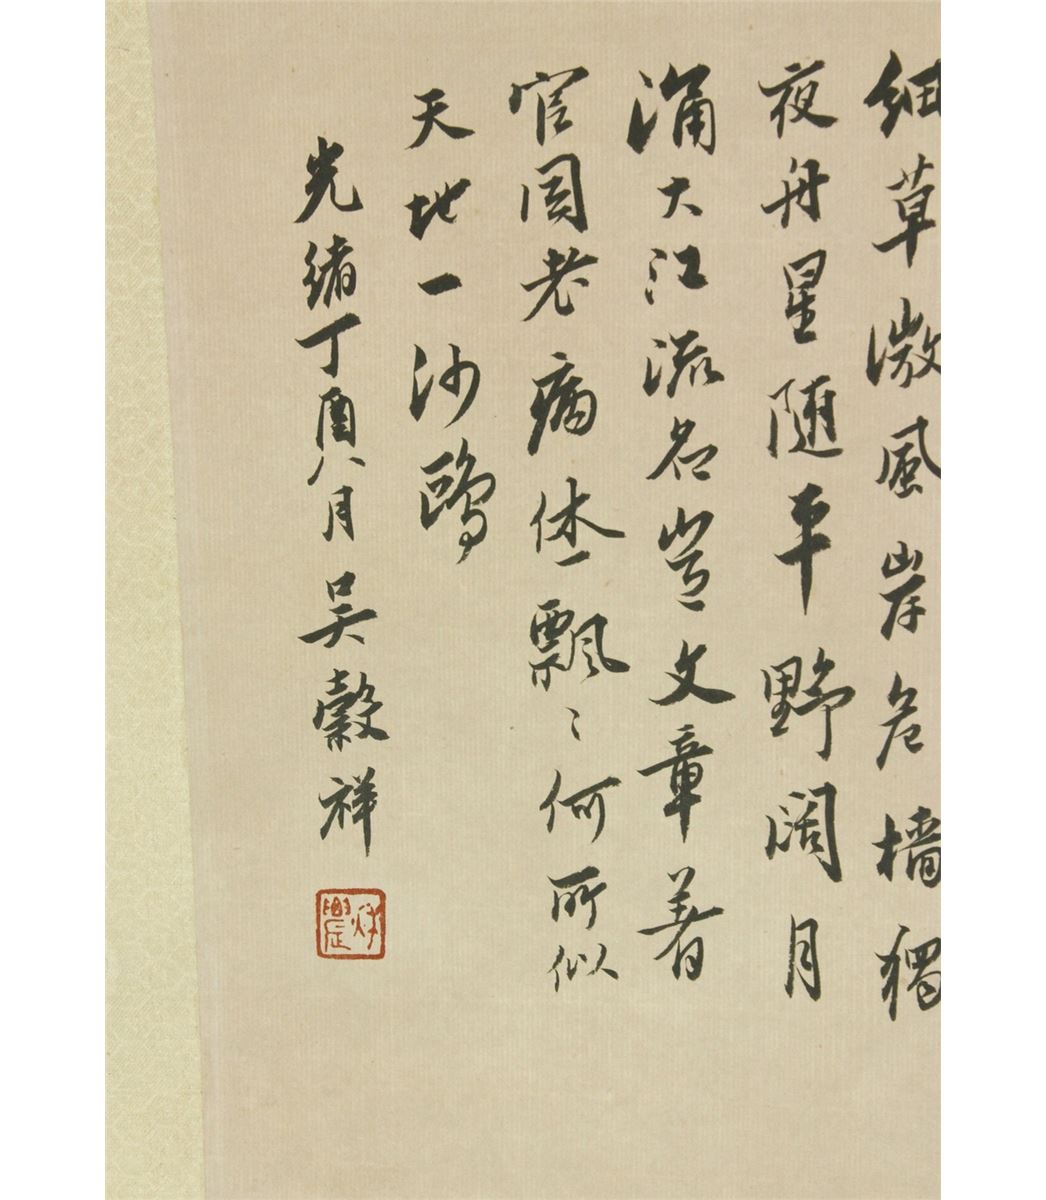 細草微風岸危檣獨
夜舟星随平野闊月
涌大江流名豈文章著
官因老病休飄〻何所似
天地一沙鷗
光緒丁酉八月吴穀祥
秋農